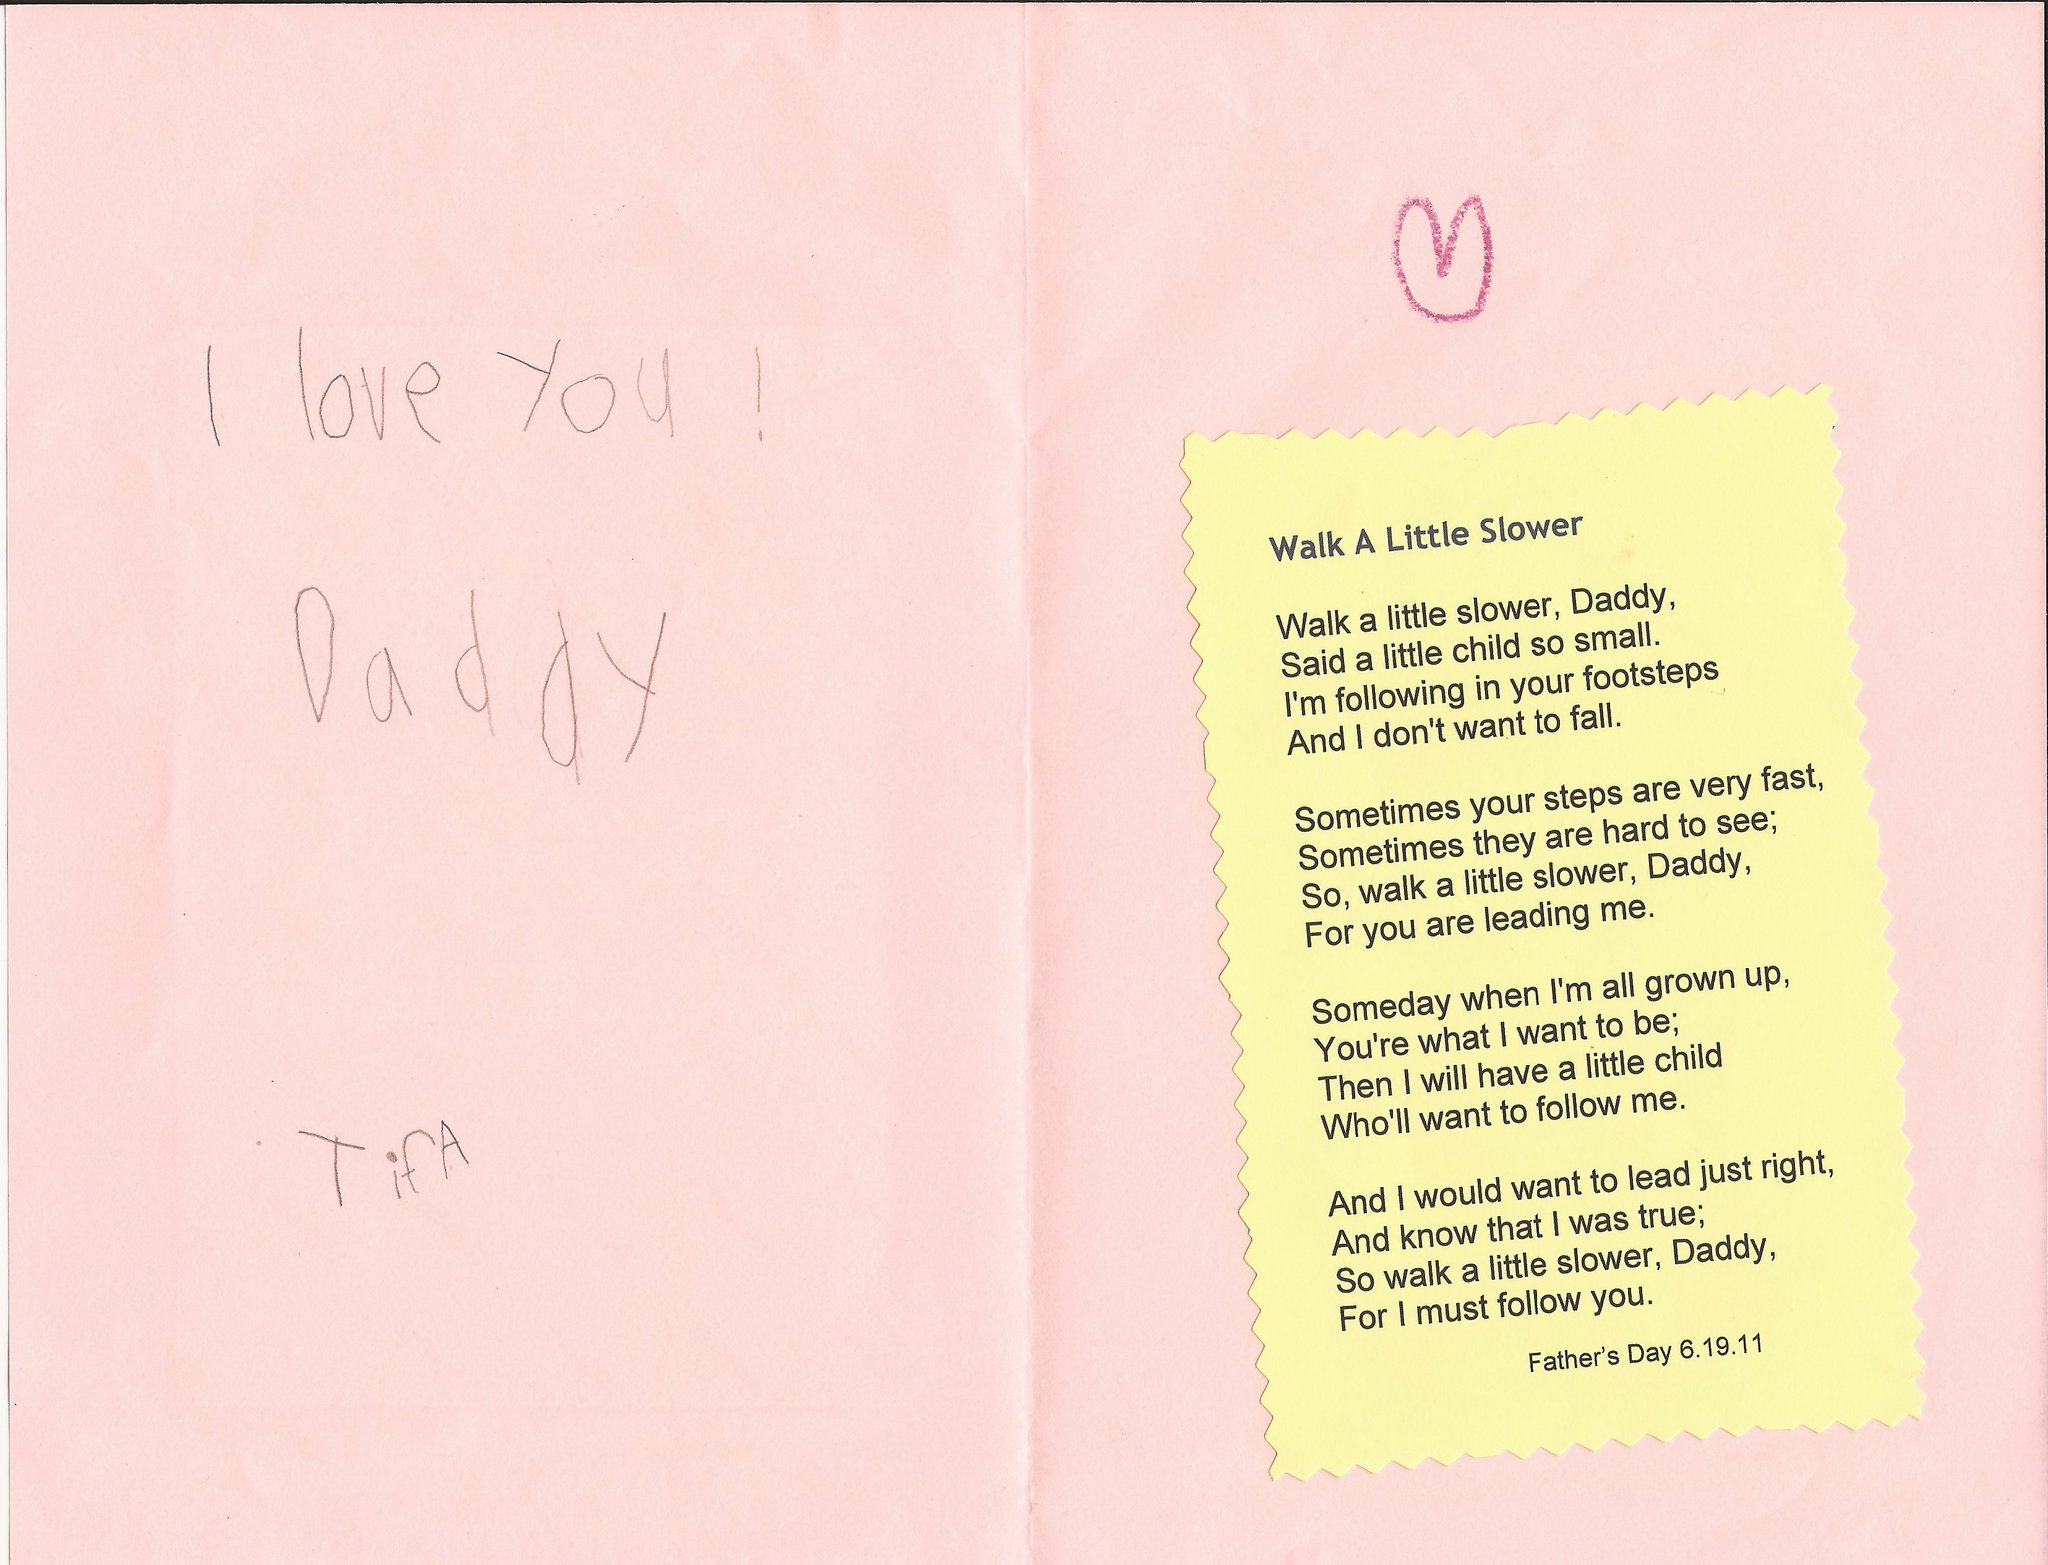 I love you!
Daddy
TifA
Walk A Little Slower
Walk a little slower, Daddy,
Said a little child so small.
I'm following in your footsteps
And I don't want to fall.
Sometimes your steps are very fast,
Sometimes they are hard to see;
So, walk a little slower, Daddy,
For you are leading me.
Someday when I'm all grown up,
You're what I want to be;
Then I will have a little child
Who'll want to follow me.
And I would want to lead just right,
And know that I was true;
So walk a little slower, Daddy,
For I must follow you.
Father's Day 6.19.11